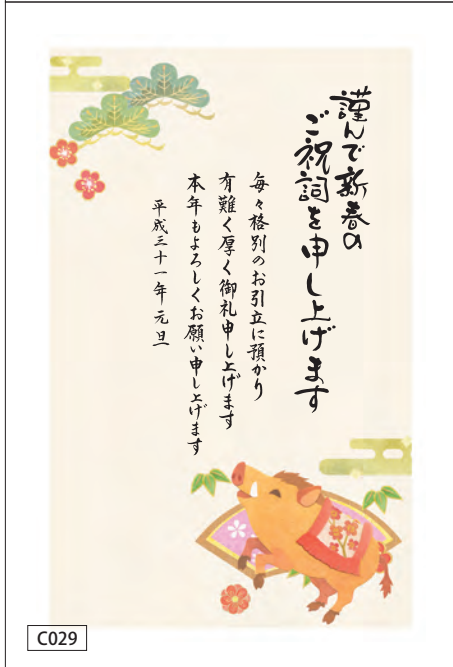 謹んで新春の
ご祝詞を申し上げます
毎々格別のお引立に預かり
有難く厚く御礼申し上げます
本年もよろしくお願い申し上げます
平成三十一年元旦
C029